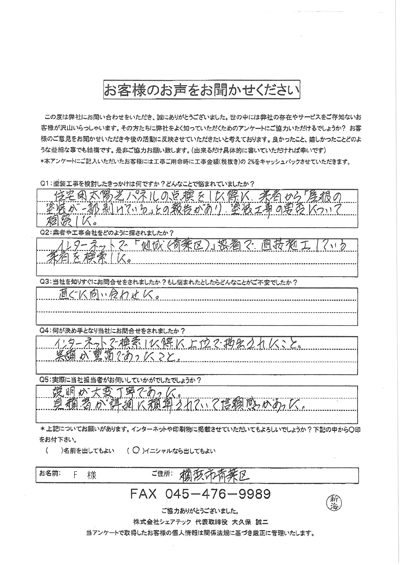 お客様のお声をお聞かせください
この度は弊社にお問い合わせをいただき、誠にありがとうございました。世の中には弊社の存在やサービスをご存知ないお
客様が沢山いらっしゃいます。その方たちに弊社をよく知っていただくためのアンケートにご協力いただけるでしょうか？ お客
様のご意見をお聞かせいただき今後の活動に反映させていただきたいと考えております。良かったこと、嬉しかったことどのよ
うな些細な事でも結構です。是非ご協力お願い致します。(出来るだけ具体的に書いていただければ幸いです)
*本アンケートにご記入いただいたお客様には工事ご用命時に工事金額(税抜き)の2%をキャッシュバックさせていただきます。
Q1:塗装工事を検討したきっかけは何ですか？どんなことで悩まれていましたか？
住宅用太陽光パネルの点検をした際に、業者から「屋根の
塗装が一部剥げている」との報告があり、塗装工事の要否について
相談した。
Q2:業者や工事会社をどのように探されましたか？
インターネットで「地域(青葉区)」密着で、直接施工している
業者を検索した。
Q3:当社を知りすぐにお問合せをされましたか？もし悩まれたとしたらどんなことがご不安でしたか？
直ぐに問い合わせした。
Q4:何が決め手となり当社にお問合せをされましたか？
インターネットで検索した際に上位で抽出されたこと。
実績が豊富であったこと。
Q5:実際に当社担当者がお伺いしていかがでしたでしょうか？
説明が大変丁寧であった。
見積書が詳細に積算されていて信頼感があった。
*上記についてお願いがあります。インターネットや印刷物に掲載させていただいてもよろしいでしょうか？下記の中から〇印
をお付け下さい。
( )名前を出してもよい (〇)イニシャルなら出してもよい
お名前: F 様 ご住所: 横浜市青葉区
FAX 045-476-9989
新海
ご協力ありがとうございました。
株式会社シェアテック 代表取締役 大久保 誠二
当アンケートで取得したお客様の個人情報は関係法規に基づき厳正に管理いたします。